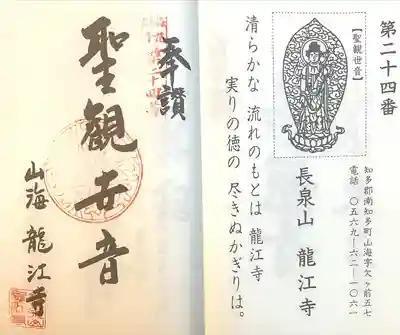 第二十四番
【聖観世音】
長泉山　龍江寺
知多郡南知多町山海字欠ヶ前五七
電話　〇五六九―六二―一〇六一
清らかな　流れのもとは　龍江寺
実りの徳の　尽きぬかぎりは。
奉讃
聖観世音
山海　龍江寺